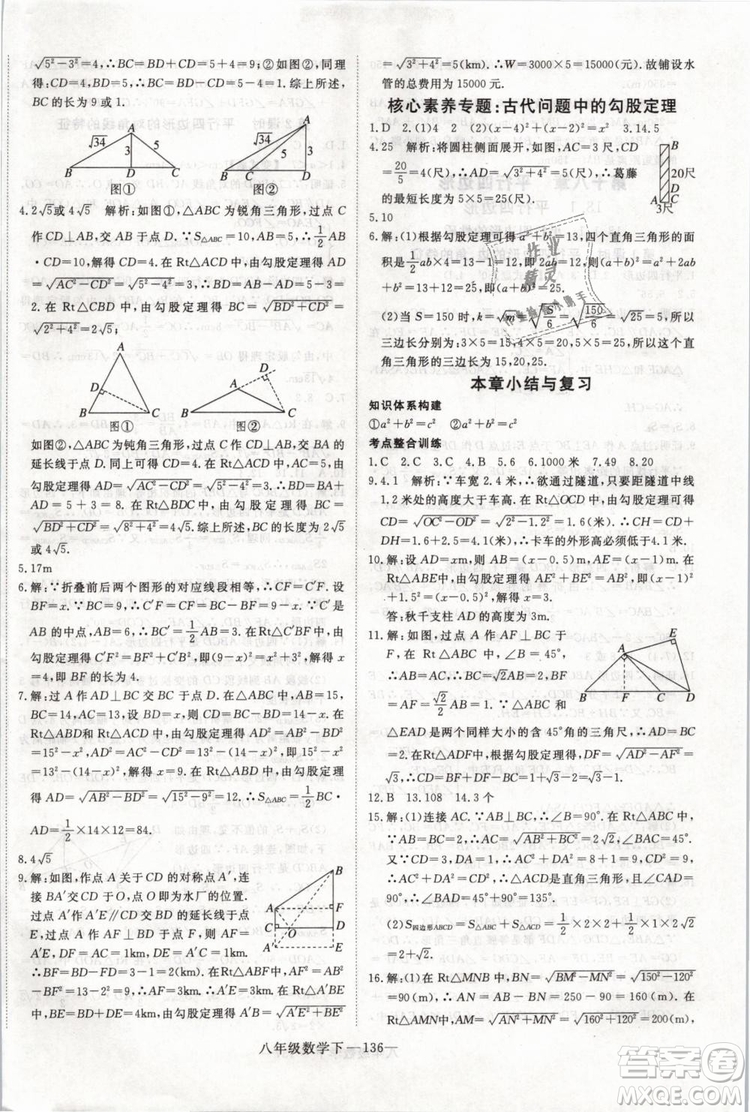 √5²－3²＝4,∴BC＝BD＋CD＝5＋4＝9.如图②,同理
得:CD＝4,BD＝5,∴BC＝BD－CD＝5－4＝1.综上所述,
BC的长为9或1.
A
√34
3
5
B
D
C
图①
A
√34
3
5
B
C
D
图②
4.2√5或4√5 解析:如图①,△ABC为锐角三角形,过点C作
CD⊥AB,交AB于点D.∵S△ABC＝10,AB＝5,∴1/2AB
·CD＝10,解得CD＝4.在Rt△ACD中,由勾股定理得AD
＝√AC²－CD²＝√5²－4²＝3,∴BD＝AB－AD＝5－3＝
2.在Rt△CBD中,由勾股定理得BC＝√BD²＋CD²＝
√2²＋4²＝2√5;
A
D
B
C
图①
A
D
B
C
图②
如图②,△ABC为钝角三角形,过点C作CD⊥AB,交BA的
延长线于点D.同上可得CD＝4.在Rt△ACD中,AC＝5,由
勾股定理得AD＝√AC²－CD²＝√5²－4²＝3,∴BD＝AB＋
AD＝5＋3＝8.在Rt△BDC中,由勾股定理得BC＝
√BD²＋CD²＝√8²＋4²＝4√5.综上所述,BC的长度为2√5
或4√5.
5.17m
6.解:∵折叠前后两个图形的对应线段相等,∴CF＝C′F.设
BF＝x.∵BC＝9,∴C′F＝CF＝BC－BF＝9－x.由题意得
BC′＝1/2AB＝1/2×6＝3.在Rt△C′BF中,根据勾股定理可
得C′F²＝BF²＋C′B²,即(9－x)²＝x²＋3²,解得x＝4,
即BF的长为4.
7.解:过点A作AD⊥BC,交BC于点D.∵AB＝15,
BC＝14,AC＝13,∴设BD＝x,则CD＝14－x.在
Rt△ABD和Rt△ACD中,由勾股定理得AB²－BD²
＝AC²－CD²,即15²－x²＝13²－(14－x)²,解得x＝9,∴AD
＝√AB²－BD²＝√15²－9²＝12,∴S△ABC＝1/2BC·
AD＝1/2×14×12＝84.
8.4√5
9.解:如图,作点A关于CD的对称点A′,连
接BA′交CD于点O,点O即为水厂的位置.
过点A′作A′E∥CD交BD的延长线于点E,
过点A作AF⊥BD于点F,则AF＝A′E,DF
＝AC＝1km,DE＝A′C＝1km.
∴BF＝BD－FD＝3－1＝2(km).在Rt△ABF中,AF²＝
AB²－BF²＝9,∴AF＝3km,∴A′E＝3km.在Rt△A′BE
中,BE＝BD＋DE＝4km,由勾股定理得A′B＝√A′E²＋BE²＝
√3²＋4²＝5(km).∴W＝3000×5＝15000(元).故铺设水
管的总费用为15000元.
核心素养专题:古代问题中的勾股定理
1.D 2.(1)4 2 (2)x²＋2²＝(x＋1)² 3.14.5
4.25 解析:将圆柱侧面展开,如图,∵CD＝
20/5＝4(尺),∴AD＝√3²＋4²＝5(尺),∴葛藤
的最短长度为5×5＝25(尺).
20尺
3尺
5.10
6.解:(1)根据勾股定理可得a²＋b²＝13,四个直角三角形的面
积是1/2ab×4＝13－1＝12,即2ab＝12,则(a＋b)²＝a²＋
2ab＋b²＝13＋12＝25.
三边长分别为3×5＝15,4×5＝20,5×5＝25.故这个直
角三角形的三边长为15,20,25.
本章小结与复习
知识体系构建
①a²＋b²＝c² ②a²＋b²＝c²
考点整合训练
1.C 2.C 3.C 4.B 5.6 6.1000米 7.49 8.20
9.4.1 解析:∵车宽2.4米,∴欲通过隧道,只要距隧道中线
1.2米处的高度大于车高.在Rt△OCD中,由勾股定理可得
CD＝√OC²－OD²＝√2²－1.2²＝1.6(米),∴CH＝CD＋
DH＝1.6＋2.5＝4.1(米),∴卡车的外形高必须低于4.1米.
10.解:设AD＝xm,则由题意可得AB＝(x－0.5)m,AE＝(x
－1)m.在Rt△ABE中,AE²＋BE²＝AB²,即(x－1)²＋
1.5²＝(x－0.5)²,解得x＝3.
答:秋千支柱AD的高度为3m.
11.解:如图,过点A作AF⊥BC于
F.在Rt△ABC中,∠B＝45°,∴
BC＝√2AB＝2,∴BF
＝AF＝1/2BC＝1.
E
A
B
F
C
D
∵两个同样大小的含45°角的三角尺,∴AD＝BC＝2.在
Rt△ADF中,根据勾股定理得,DF＝√AD²－AF²＝√3,
∴CD＝BF＋DF－BC＝1＋√3－2＝√3－1.
12.B 13.108 14.3个
15.解:(1)连接AC.∵AB＝BC＝2,∠B＝90°,∴AC＝2√2,
∠BAC＝45°.
又∵CD＝3,DA＝1,∴AC²＋DA²＝8＋1＝9,CD²＝9,
∴AC²＋DA²＝CD²,∴△ACD是直角三角形,∴∠CAD＝
90°,∴∠DAB＝45°＋90°＝135°.
(2)S四边形ABCD＝S△ABC＋S△ACD＝1/2×2×2＋1/2×1×2√2
＝2＋√2.
16.解:(1)在Rt△MNB中,BN＝√BM²－MN²＝√150²－120²
＝90(m),∴AN＝AB－BN＝250－90＝160(m).在
Rt△AMN中,AM＝√AN²＋MN²＝√160²＋120²＝200(m),
八年级数学下—136—
作业精灵
MXQE.COM